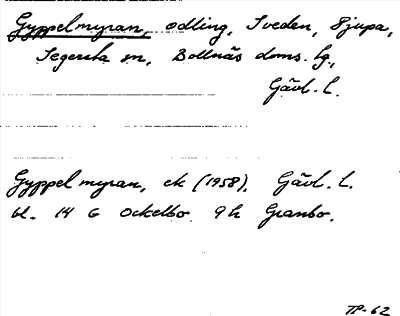 Gyppelmyran, odling, Sveden, Sjupa,
Segersta sn, Bollnäs doms. lg,
Gävl. l.
Gyppelmyran, ek (1958), Gävl. l.
bl. 14 G Ockelbo 9 h Granbo.
TP-62